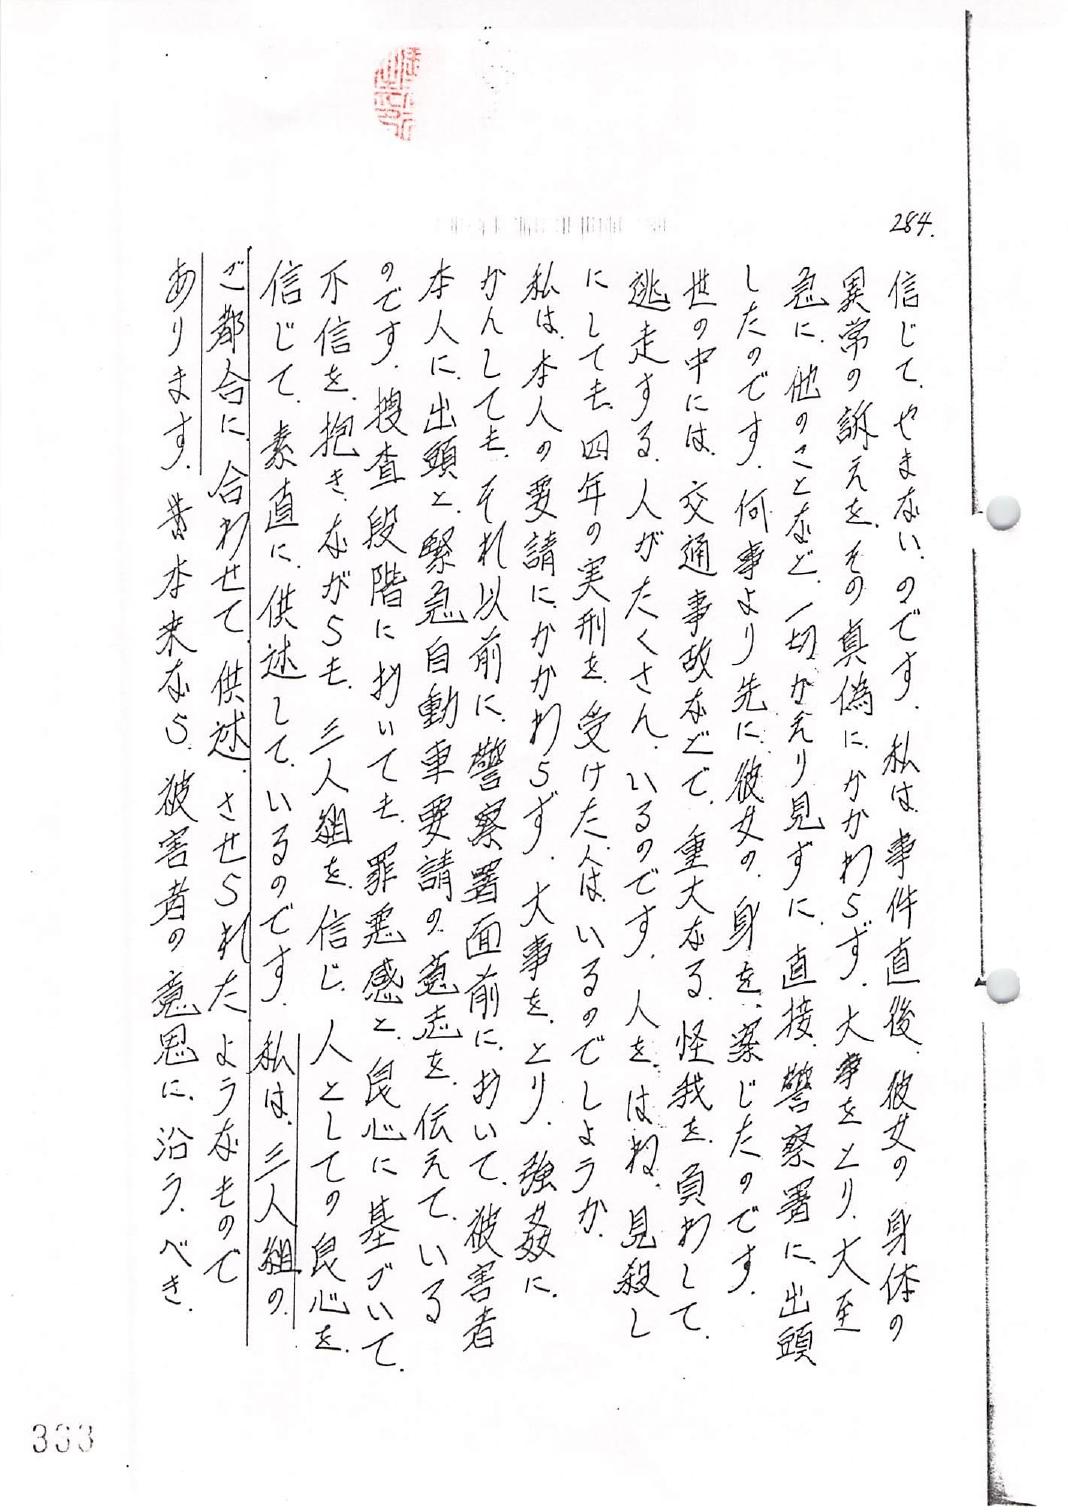 284.
信じて、やまない、のです。私は、事件直後、彼女の身体の
異常の訴えを、その真偽に、かかわらず、大事をとり、大至
急に、他のことなど、一切かえり見ずに、直接、警察署に、出頭
したのです。何事より先に、彼女の、身を、案じたのです。
世の中には、交通事故などで、重大なる、怪我を、負わして、
逃走する、人がたくさん、いるのです。人を、はね、見殺し
にしても、四年の実刑を、受けた人は、いるのでしようか。
私は、本人の要請に、かかわらず、大事を、とり、強姦に、
かんしても、それ以前に、警察署面前に、おいて、被害者
本人に、出頭と、緊急自動車要請の、意志を、伝えて、いる
のです。捜査段階に、おいても、罪悪感と、良心に基づいて、
不信を、抱き、ながらも、三人組を、信じ、人としての良心を、
信じて、素直に、供述して、いるのです。私は、三人組の、
ご都合に、合わせて、供述、させられたようなもので
あります。昔本来なら、被害者の意思に、沿う、べき、
333